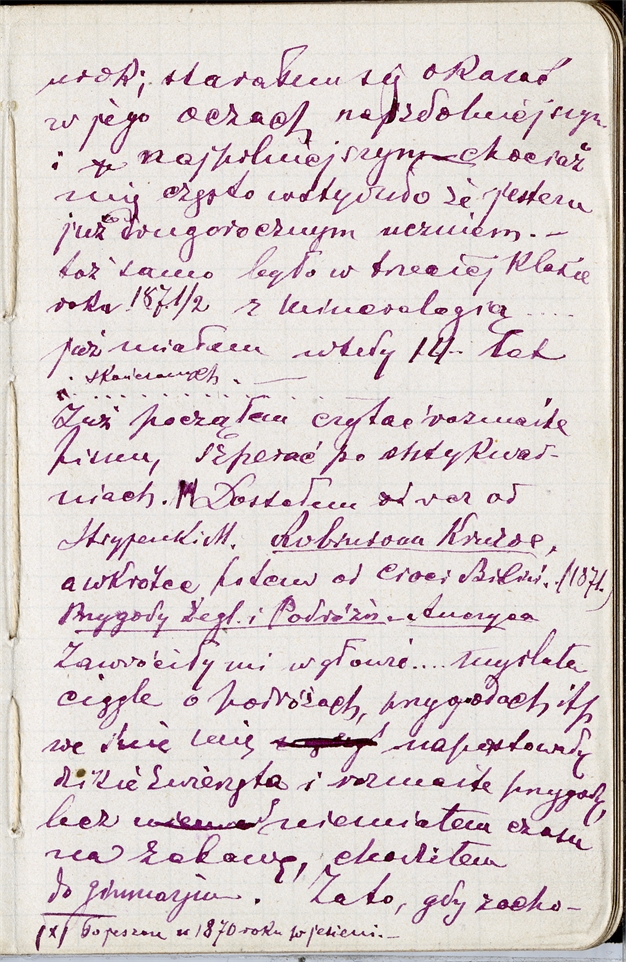 urok; starałem się okazać
w jego oczach najzdolniejszym
i najpilniejszym chociaż
mię często wstydno że jestem
już drugorocznym uczniem. –
toż samo było w trzeciej klasie
roku 1871/2 z mineralogią ....
już miałem wtedy 14 lat
skończonych. —
Już począłem czytać rozmaite
pisma, szperać po antykwar-
niach. Dostałem raz od
Robinsona Kruzoe,
a wkrótce potem od cioci (1871.)
Przygody Żegl. i Podróżn. Ameryce
Zawróciły mi w głowie.... myślałem
ciągle o podróżach, przygodach itp
we śnie mię napastowały
dzikie zwierzęta i rozmaite przygody,
lecz niemiałem czasu
na zabawę, chodziłem
do gimnazjum. Za to, gdy zacho-
(x) 1870 roku w jesieni. –